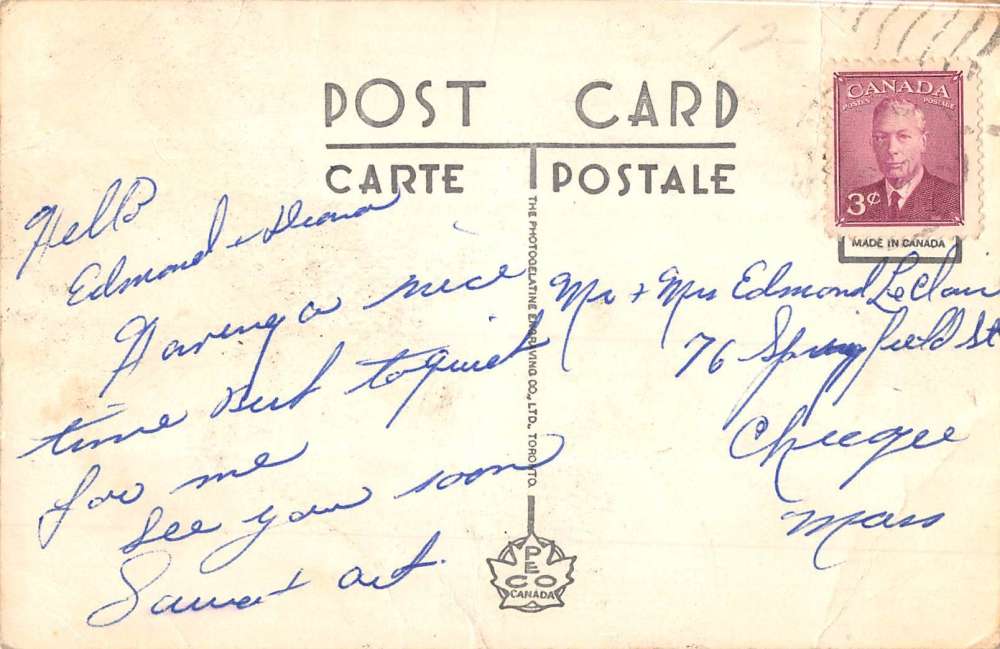 POST CARD
CARTE POSTALE
CANADA
POSTES POSTAGE
3¢
MADE IN CANADA
THE PHOTOGELATINE ENGRAVING CO., LTD., TORONTO.
PECO
CANADA
Hello
Edmond + Diana
Having a nice
time But to quiet
for me
See you soon
+ Art.
Mr + Mrs Edmond LeClair
76 Springfield St
Mass